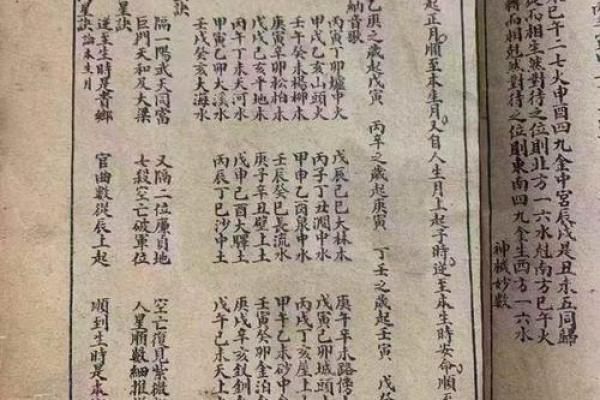 水巳午二七火申酉四九金中宮辰戌是丑未五同歸
從而相生然對待之位則北方一六水尅南方巳午火
轉而相尅然對待之位則東南四九金生西方一六水
神機妙數
起正月順至本生月又自人生月上起子時逆至本生時安命順至
乙庚之歲起戊寅 丙辛之歲起庚寅 丁壬之歲起壬寅 戊癸
納音歌
丙寅丁卯爐中火 戊辰己巳大林木 庚午辛未路傍
甲戌乙亥山頭火 丙子丁丑澗中水 戊寅己卯城頭
壬午癸未楊柳木 甲申乙酉泉中水 丙戌丁亥屋上
庚寅辛卯松柏木 壬辰癸巳長流水 甲午乙未砂中
戊戌己亥平地木 庚子辛丑壁上土 壬寅癸卯金泊
丙午丁未天河水 戊申己酉大驛土 庚戌辛亥釵釧
甲寅乙卯大溪水 丙辰丁巳沙中土 戊午己未天上
壬戌癸亥大海水
訣
隔一陽武天同當 又隔二位廉貞地 空亡復見紫微
巨門天和及大梁 七殺空亡破軍位 人星順數細推
逆至生時是貴鄉 官曲數從辰上起 順到生時是本
星訣 論本生月